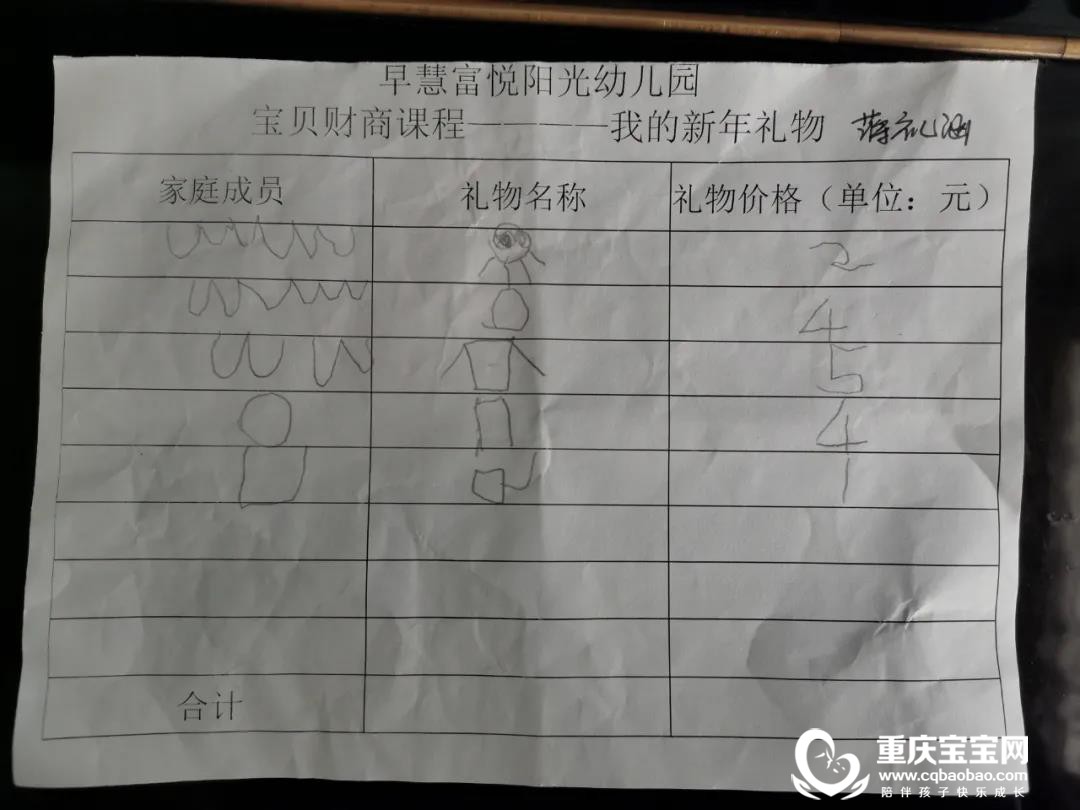 早慧富悦阳光幼儿园
宝贝财商课程————我的新年礼物
家庭成员 礼物名称 礼物价格（单位：元）
2
4
5
4
1
合计
重庆宝宝网
www.cqbaobao.com
陪伴孩子快乐成长